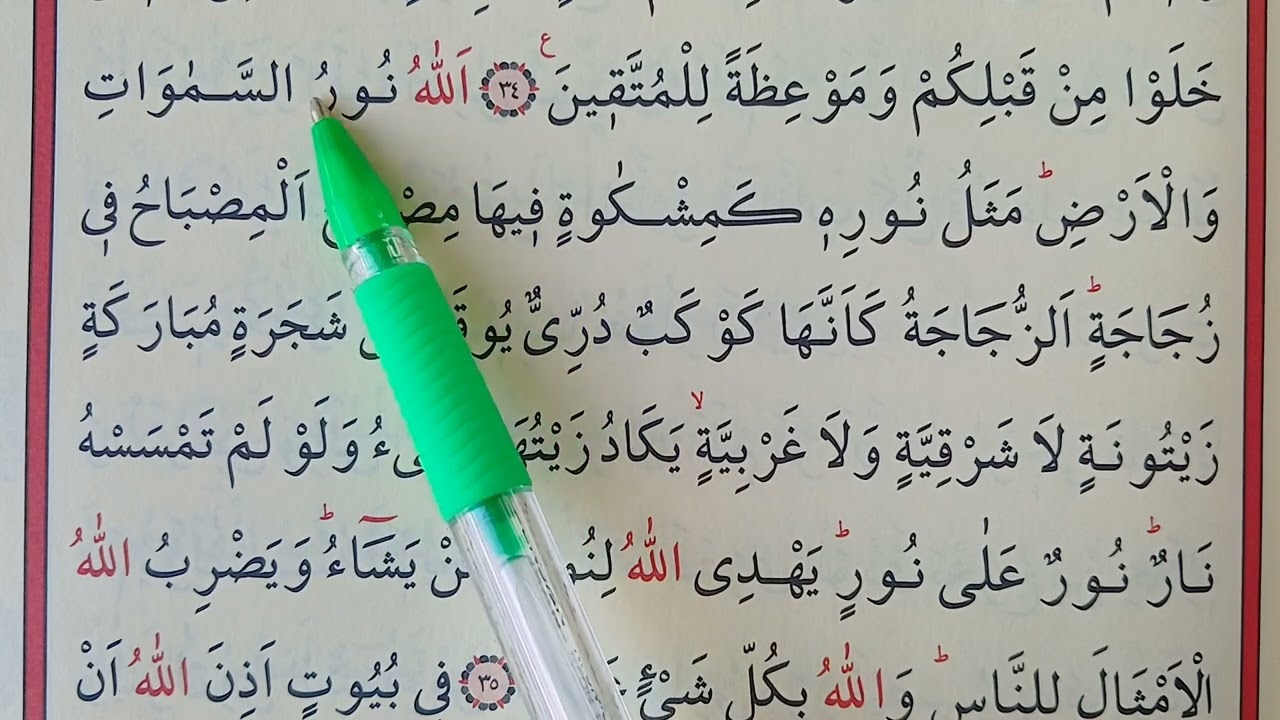 خَلَوْا مِنْ قَبْلِكُمْ وَمَوْعِظَةً لِلْمُتَّقٖينَ ع ﴿٣٤﴾ اَللّٰهُ نُورُ السَّمٰوَاتِ
وَالْاَرْضِؕ مَثَلُ نُورِهٖ كَمِشْكٰوةٍ فٖيهَا اَلْمِصْبَاحُ فٖى
زُجَاجَةٍؕ اَلزُّجَاجَةُ كَاَنَّهَا كَوْكَبٌ دُرِّىٌّ شَجَرَةٍ مُبَارَكَةٍ
زَيْتُونَةٍ لَا شَرْقِيَّةٍ وَلَا غَرْبِيَّةٍۙ يَكَادُ وَلَوْ لَمْ تَمْسَسْهُ
نَارٌؕ نُورٌ عَلٰى نُورٍؕ يَهْدِى اللّٰهُ يَشَٓاءُؕ وَيَضْرِبُ اللّٰهُ
الْاَمْثَالَ لِلنَّاسِؕ وَاللّٰهُ بِكُلِّ شَىْءٍ ﴿٣٥﴾ فٖى بُيُوتٍ اَذِنَ اللّٰهُ اَنْ